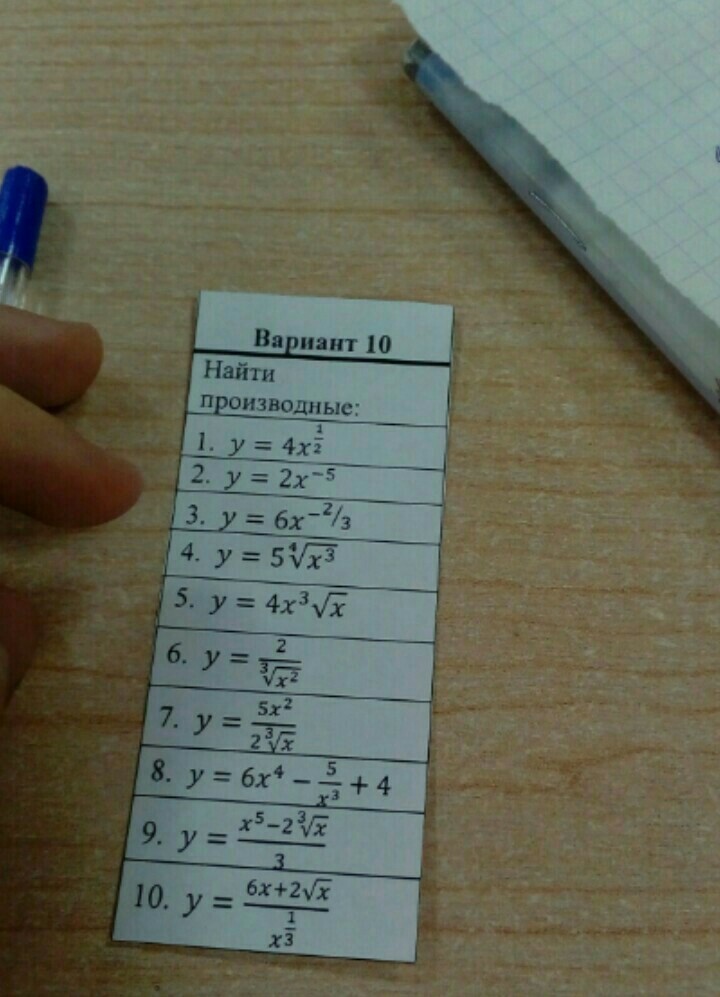 Вариант 10
Найти
производные:
1. y = 4x^{\frac{1}{2}}
2. y = 2x^{-5}
3. y = 6x^{-2/3}
4. y = 5\sqrt[4]{x^3}
5. y = 4x^3\sqrt{x}
6. y = \frac{2}{\sqrt[3]{x^2}}
7. y = \frac{5x^2}{2\sqrt[3]{x}}
8. y = 6x^4 - \frac{5}{x^3} + 4
9. y = \frac{x^5-2\sqrt[3]{x}}{3}
10. y = \frac{6x+2\sqrt{x}}{x^{\frac{1}{3}}}